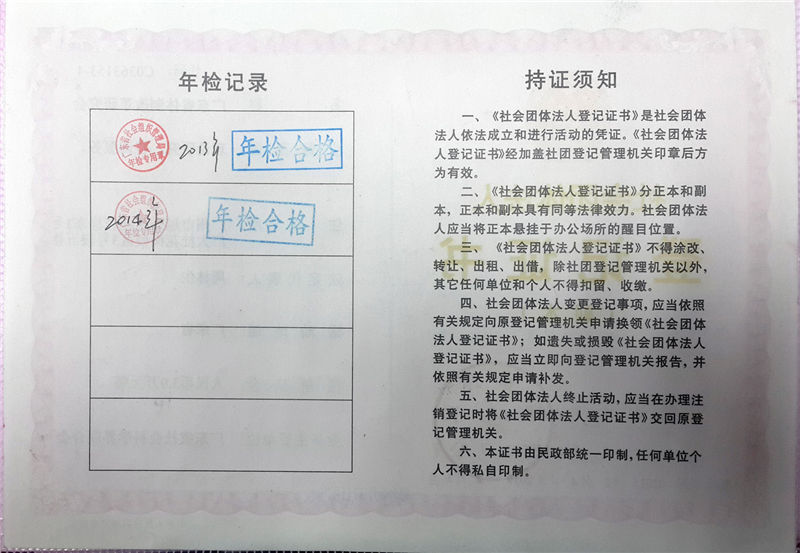 年检记录
广东省社会组织管理局
年检专用章
2013年
年检合格
2014年
年检合格
持证须知
一、《社会团体法人登记证书》是社会团体
法人依法成立和进行活动的凭证。《社会团体法
人登记证书》经加盖社团登记管理机关印章后方
为有效。
二、《社会团体法人登记证书》分正本和副
本，正本和副本具有同等法律效力。社会团体法
人应当将正本悬挂于办公场所的醒目位置。
三、《社会团体法人登记证书》不得涂改、
转让、出租、出借，除社团登记管理机关以外，
其它任何单位和个人不得扣留、收缴。
四、社会团体法人变更登记事项，应当依照
有关规定向原登记管理机关申请换领《社会团体
法人登记证书》；如遗失或损毁《社会团体法人
登记证书》，应当立即向登记管理机关报告，并
依照有关规定申请补发。
五、社会团体法人终止活动，应当在办理注
销登记时将《社会团体法人登记证书》交回原登
记管理机关。
六、本证书由民政部统一印制，任何单位个
人不得私自印制。